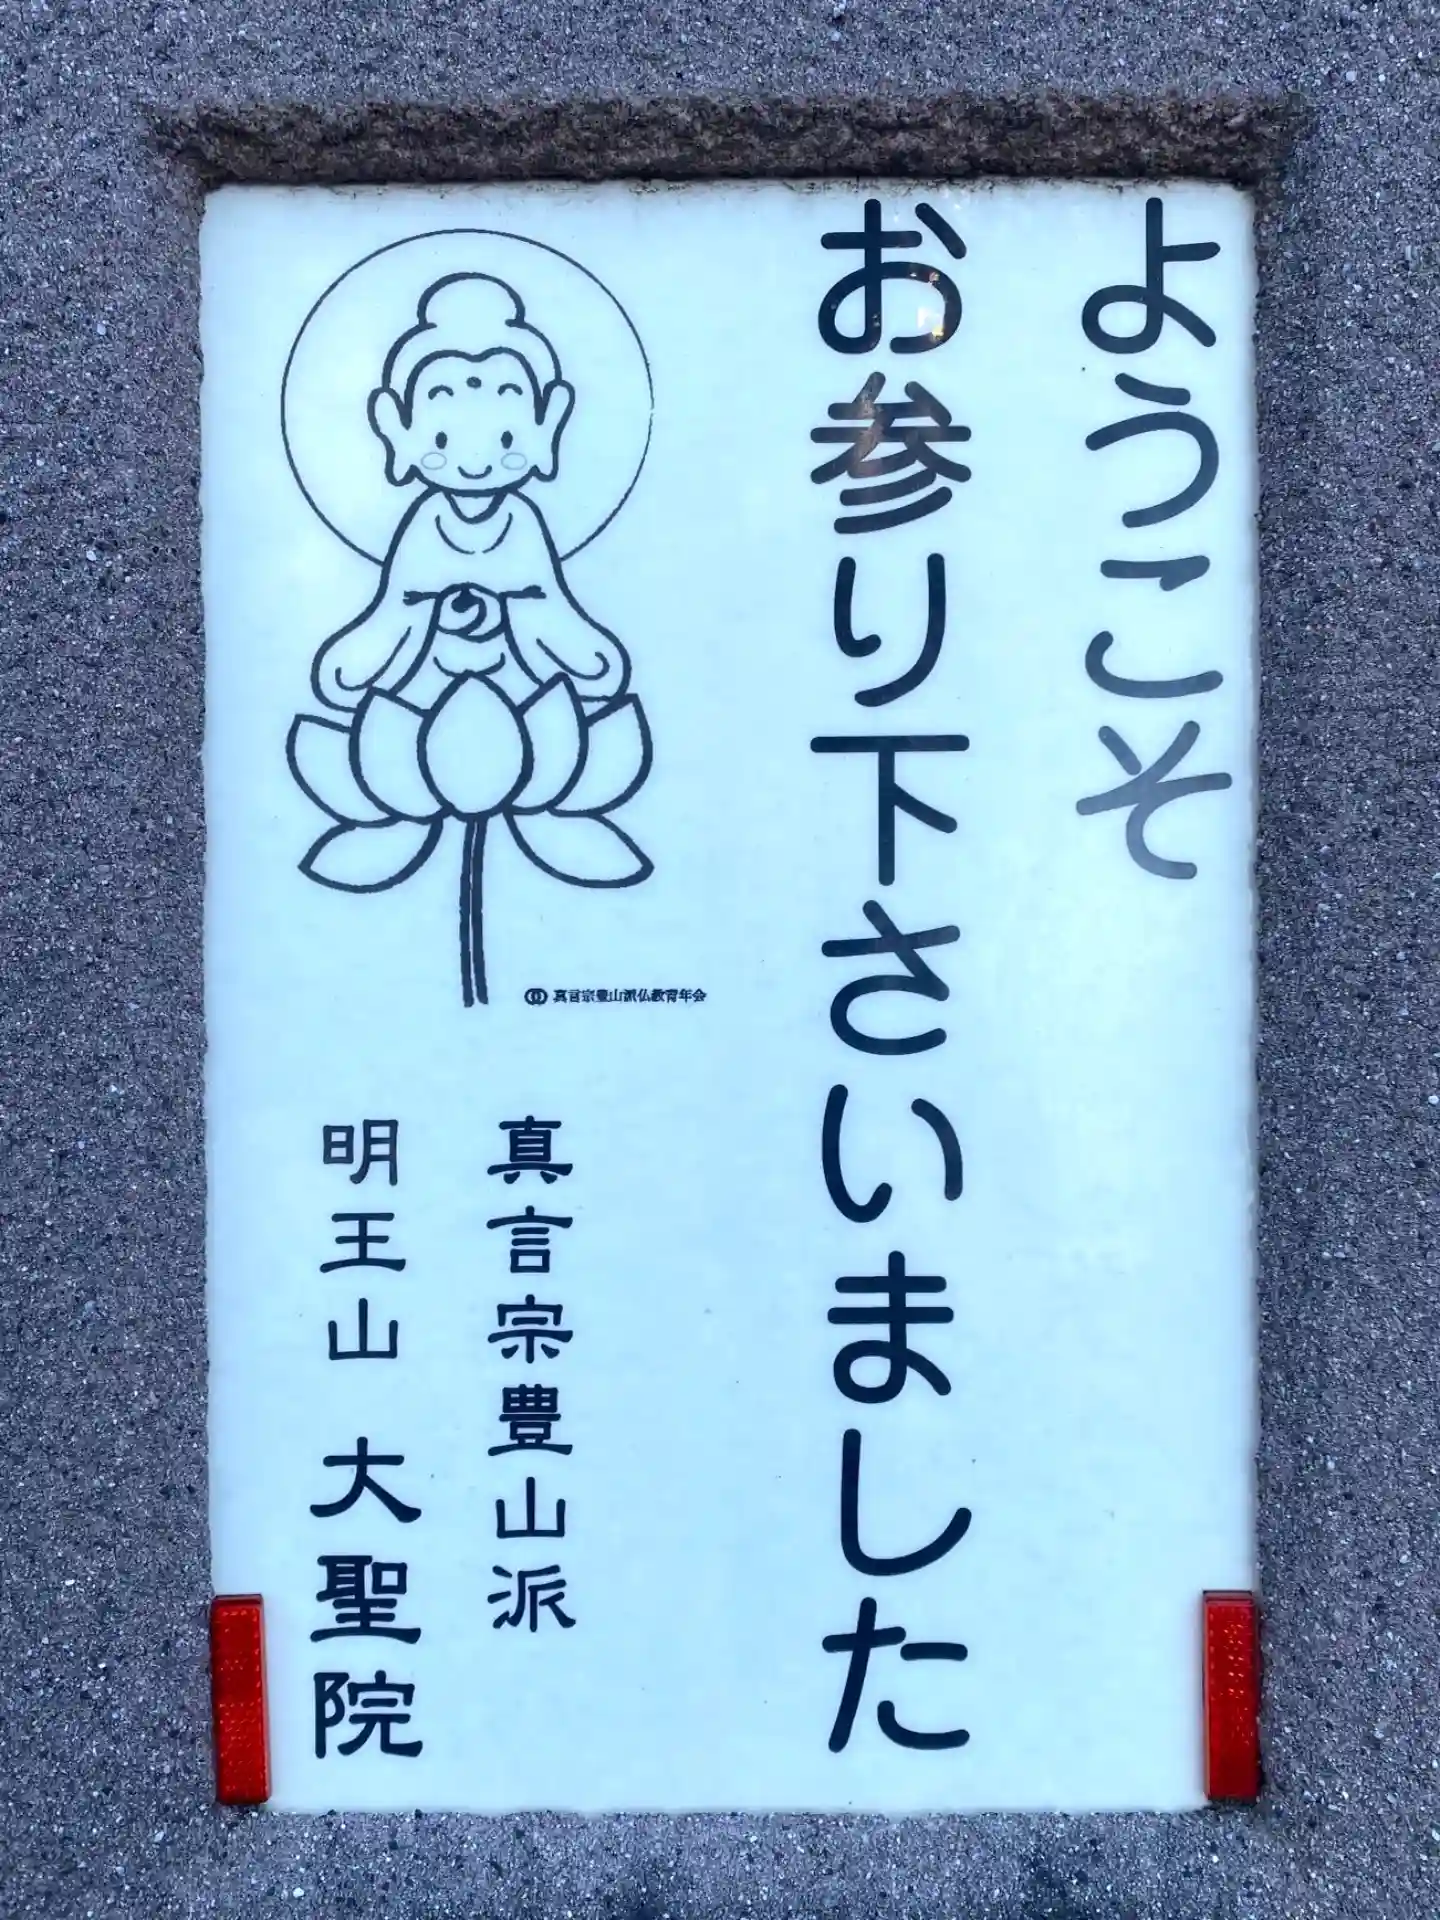 ようこそ
お参り下さいました
真言宗豊山派仏教青年会
真言宗豊山派
明王山 大聖院